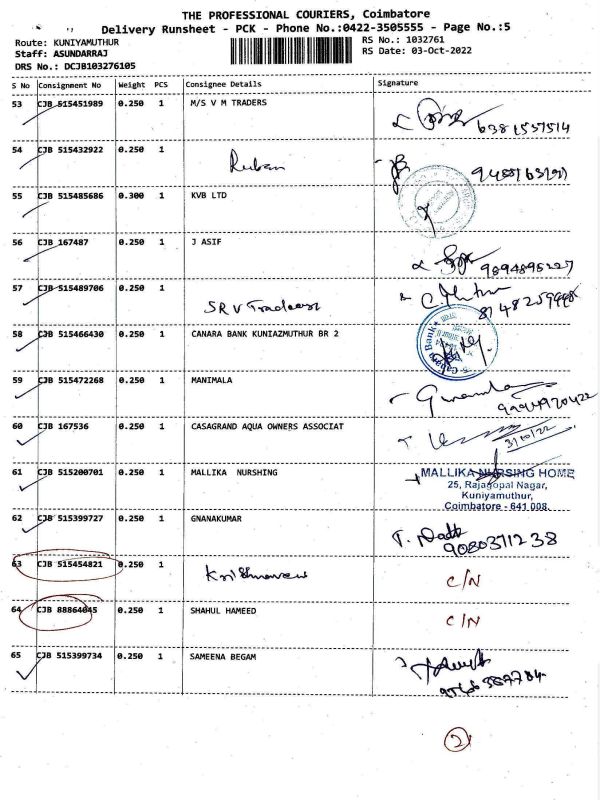 THE PROFESSIONAL COURIERS, Coimbatore
Delivery Runsheet - PCK - Phone No.:0422-3505555 - Page No.:5
Route: KUNIYAMUTHUR RS No.: 1032761
Staff: ASUNDARRAJ RS Date: 03-Oct-2022
DRS No.: DCJB103276105
S No Consignment No Weight PCS Consignee Details Signature
53 CJB 515451989 0.250 1 M/S V M TRADERS 6381537514
54 CJB 515432922 0.250 1
Ruban
55 CJB 515485686 0.300 1 KVB LTD
56 CJB 167487 0.250 1 J ASIF
9894895227
57 CJB 515489706 0.250 1
SRV Traders
58 CJB 515466430 0.250 1 CANARA BANK KUNIAZMUTHUR BR 2
59 CJB 515472268 0.250 1 MANIMALA
9994920422
60 CJB 167536 0.250 1 CASAGRAND AQUA OWNERS ASSOCIAT
3/10/22
61 CJB 515200701 0.250 1 MALLIKA NURSHING MALLIKA NURSING HOME
25, Rajagopal Nagar,
Kuniyamuthur,
Coimbatore - 641 008.
62 CJB 515399727 0.250 1 GNANAKUMAR
9080371238
63 CJB 515454821 0.250 1 C/N
64 CJB 88864045 0.250 1 SHAHUL HAMEED C/N
65 CJB 515399734 0.250 1 SAMEENA BEGAM
2